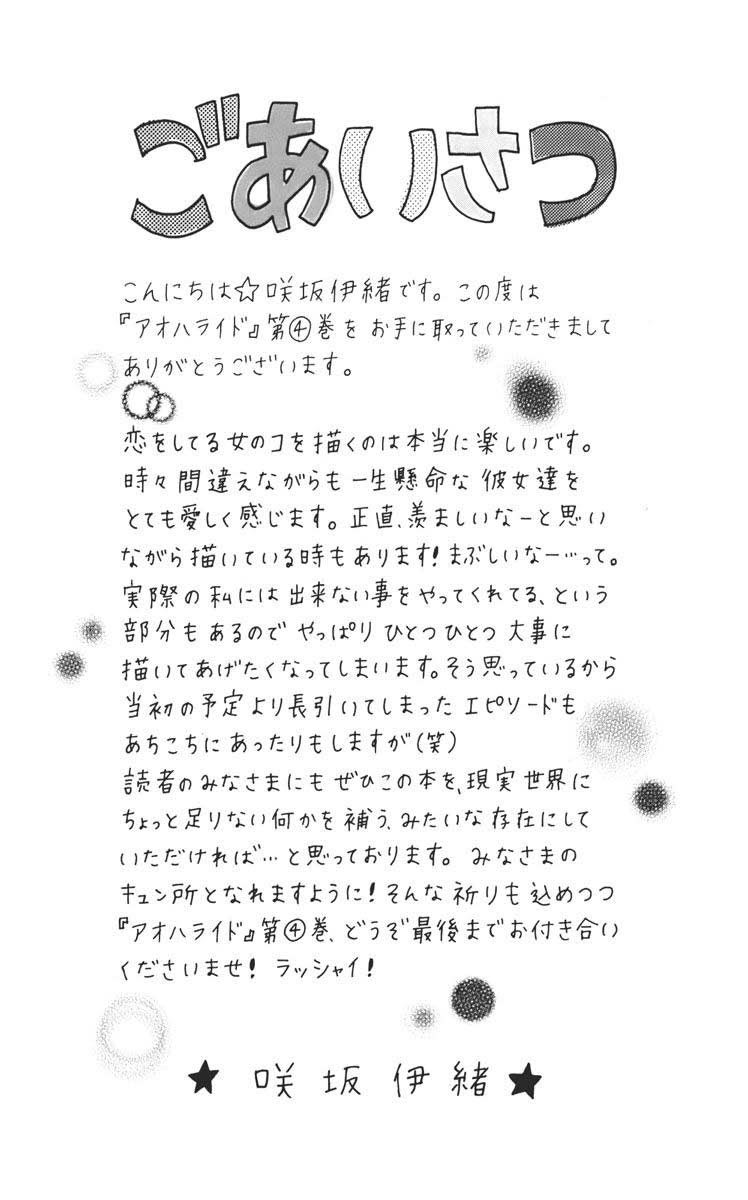 ごあいさつ
こんにちは☆咲坂伊緒です。この度は
『アオハライド』第④巻を お手に取っていただきまして
ありがとうございます。
恋をしてる女のコを描くのは本当に楽しいです。
時々間違えながらも一生懸命な彼女達を
とても愛しく感じます。正直、羨ましいなーと思い
ながら描いている時もあります!まぶしいなー…って。
実際の私には出来ない事をやってくれてる、という
部分もあるので やっぱり ひとつひとつ 大事に
描いてあげたくなってしまいます。そう思っているから
当初の予定より長引いてしまった エピソードも
あちこちに あったりもしますが(笑)
読者のみなさまにも ぜひこの本を、現実世界に
ちょっと足りない何かを補う、みたいな存在にして
いただければ…と思っております。 みなさまの
キュン所となれますように!そんな祈りも込めつつ
『アオハライド』第④巻、どうぞ最後までお付き合い
くださいませ! ラッシャイ!
★ 咲坂伊緒 ★